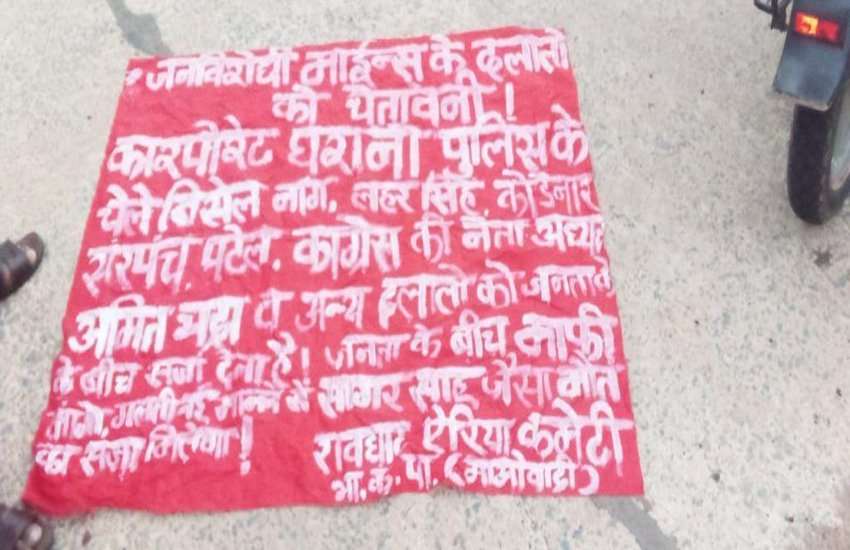 जनविरोधी माईन्स के दलालो
को चेतावनी !
कारपोरेट घरानो पुलिस के
चेले बिसेल नाग, लहर सिंह, कोडनार
सरपंच. पटेल. कांग्रेस की नेता अध्यक्ष
अमित भद्रा व अन्य दलालो को जनता के
के बीच सजा देना है! जनता के बीच माफी
मांगो, गलती नई मानने से सागर साहू जैसा मौत
का सजा मिलेगा! रावघाट ऐरिया कमेटी
भा. क. पा. (माओवादी)